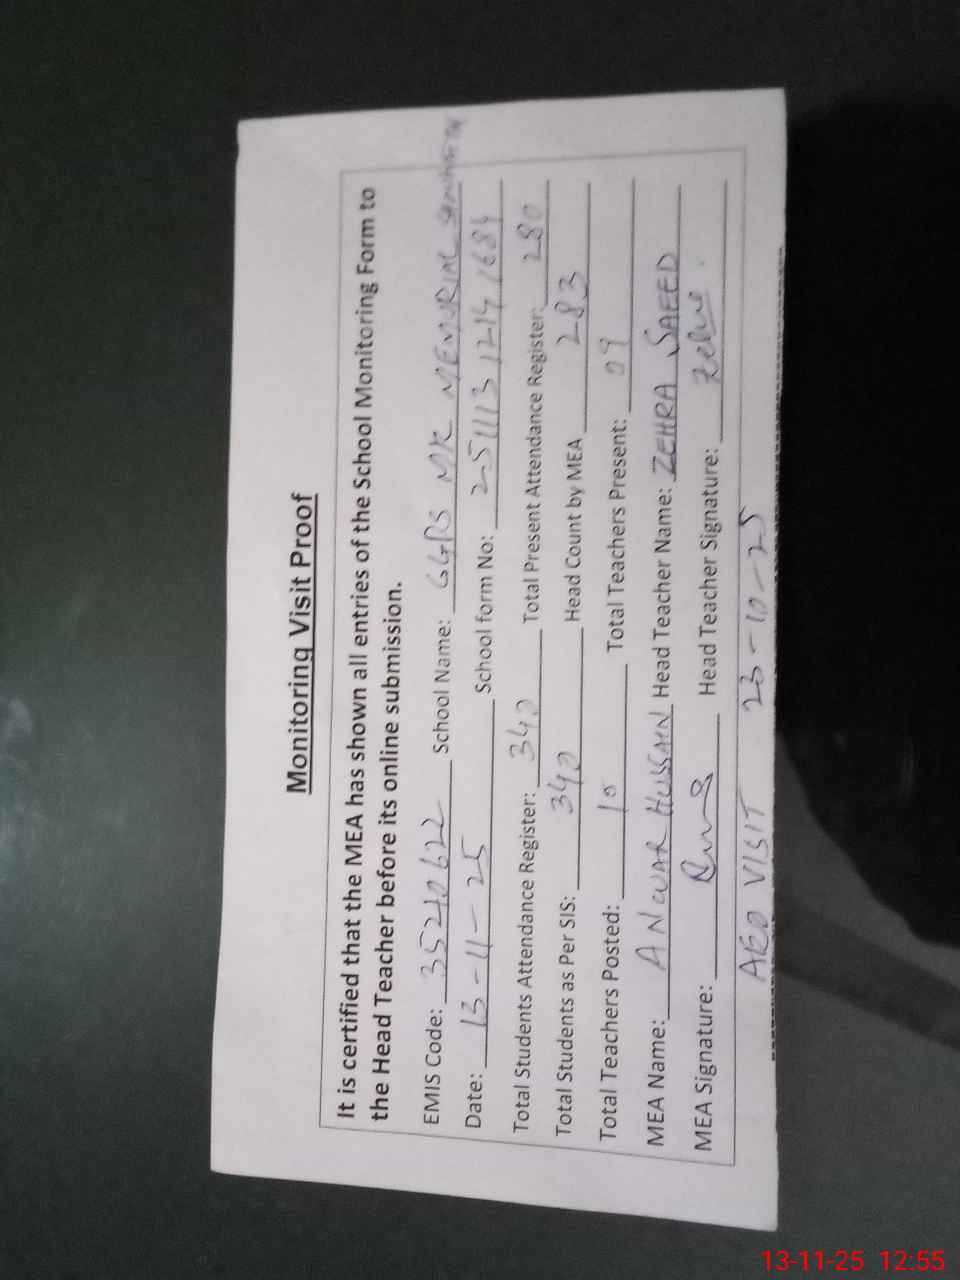 Monitoring Visit Proof
It is certified that the MEA has shown all entries of the School Monitoring Form to
the Head Teacher before its online submission.
EMIS Code: 35210622 School Name: GGPS MK MEMORIAL
Date: 13-11-25 School form No: 251113 1214 1684
Total Students Attendance Register: 340 Total Present Attendance Register: 280
Total Students as Per SIS: 340 Head Count by MEA 283
Total Teachers Posted: 10 Total Teachers Present: 09
MEA Name: ANWAR HUSSAIN Head Teacher Name: ZEHRA SAEED
MEA Signature: Head Teacher Signature:
AEO VISIT 23-10-25
13-11-25 12:55